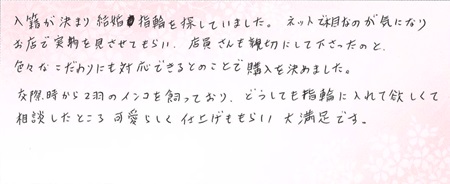 入籍が決まり結婚指輪を探していました。ネットで目なのが気になり
お店で実物を見させてもらい、店員さんも親切にして下さったのと、
色々なこだわりにも対応できるとのことで購入を決めました。
交際時から2羽のインコを飼っており、どうしても指輪に入れて欲しくて
相談したところ可愛らしく仕上げてもらい大満足です。